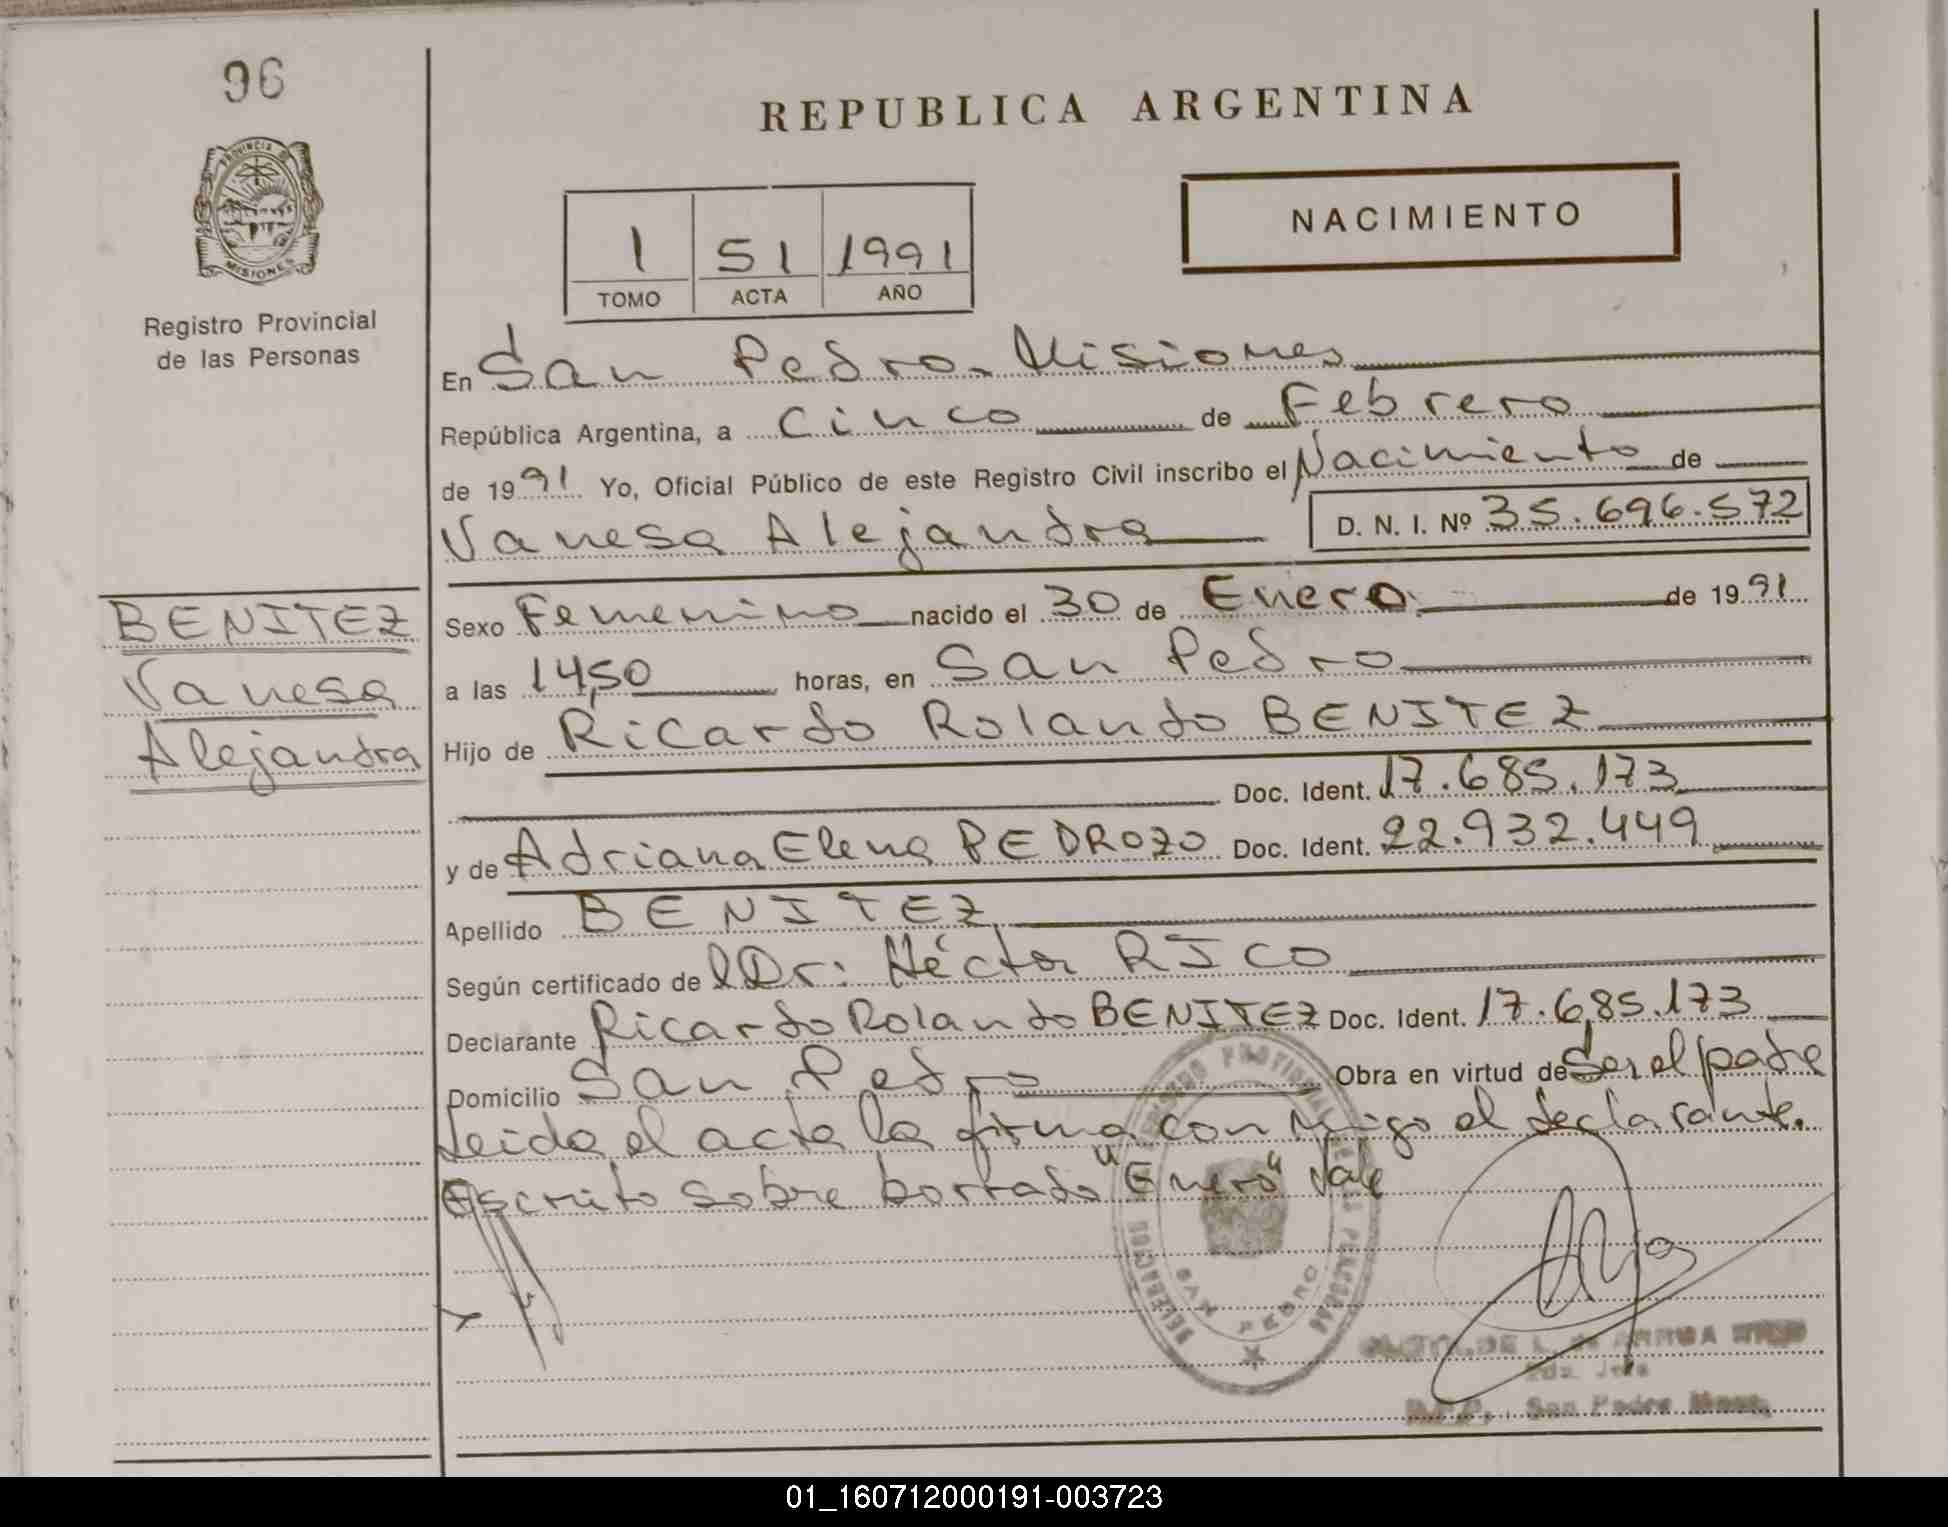 96
PROVINCIA DE
MISIONES
Registro Provincial
de las Personas
REPUBLICA ARGENTINA
NACIMIENTO
1 51 1991
TOMO ACTA AÑO
En San Pedro - Misiones
República Argentina, a Cinco de Febrero
de 1991 Yo, Oficial Público de este Registro Civil inscribo el Nacimiento de
Vanesa Alejandra D. N. I. Nº 35.696.572
BENITEZ
Vanesa
Alejandra
Sexo Femenino nacido el 30 de Enero de 1991
a las 14,50 horas, en San Pedro
Hijo de Ricardo Rolando BENITEZ
Doc. Ident. 17.685.173
y de Adriana Elena PEDROZO Doc. Ident. 22.932.449
Apellido BENITEZ
Según certificado de l Dr: Héctor RICO
Declarante Ricardo Rolando BENITEZ Doc. Ident. 17.685.173
Domicilio San Pedro Obra en virtud de Ser el padre
Leida el acta la firma con migo el declarante.
Escrito sobre borrado "Enero" Vale
SAN PEDRO
San Pedro
01_160712000191-003723